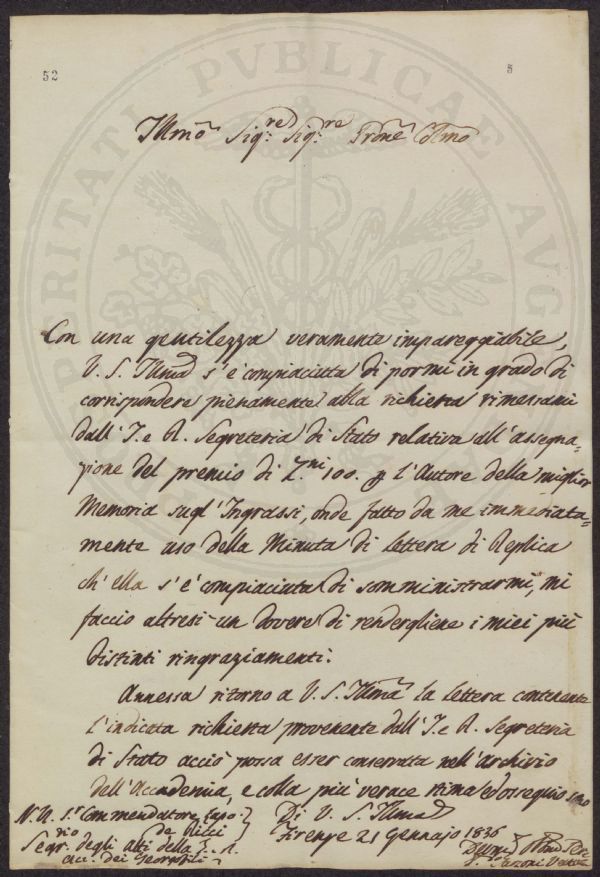 52
5
PROSPERITATI PUBLICAE AUG
Illmo Sig:re Sig:re Prone Colmo
Con una gentilezza veramente impareggiabile,
V. S. Illma s'è compiaciuta di pormi in grado di
corrispondere pienamente alla richiesta rimessami
dall'I. e R. Segreteria di Stato relativa all'assegna=
zione del premio di Z.ni 100. p l'Autore della miglior
Memoria sugl'Ingrassi, onde fatto da me immediata=
mente uso della Minuta di Lettera di Replica
ch'ella s'è compiaciuta di somministrarmi, mi
faccio altresì un dovere di rendergliene i miei più
distinti ringraziamenti.
Annessa ritorno a V. S. Illma la Lettera contenente
l'indicata richiesta proveniente dall'I. e R. Segreteria
di Stato acciò possa esser conservata nell'archivio
dell'Accademia, e colla più verace stima ed ossequio sono
Di V. S. Illma
Firenze 21 Gennajo 1836
N. U. Sr Commendatore Lapo:
rio de Ricci
Segr. degli Atti della I. e R.
Acc. dei Georgofili